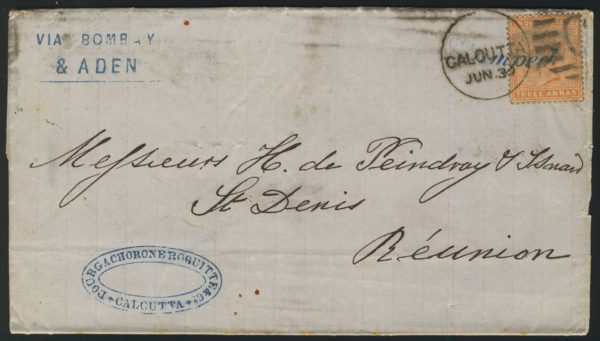 VIA BOMBAY
& ADEN
CALCUTTA
JUN.30
THREE ANNAS
Messieurs H. de Peindray & Isnard
St Denis
Réunion
DOURGACHORONEROQUITTE & Co
CALCUTTA